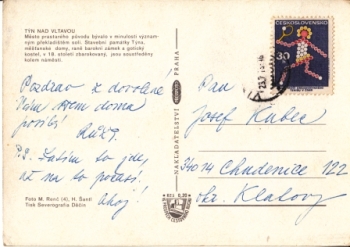 TÝN NAD VLTAVOU
Město prastarého původu bývalo v minulosti význam-
ným překladištěm soli. Stavební památky Týna,
měšťanské domy, raně barokní zámek a gotický
kostel, v 18. století zbarokovaný, jsou soustředěny
kolem náměstí.
Pozdrav z dovolené
Vám všem doma
posílá
P.S. Zatím to jde,
ať na to počasí
Ahoj!
Foto M. Renč (4), H. Šantl
Tisk Severografia Děčín
NAKLADATELSTVÍ
ČESKOSLOVENSKO
30
Pan
Josef Kubec
34014 Chudenice 122
okr. Klatovy